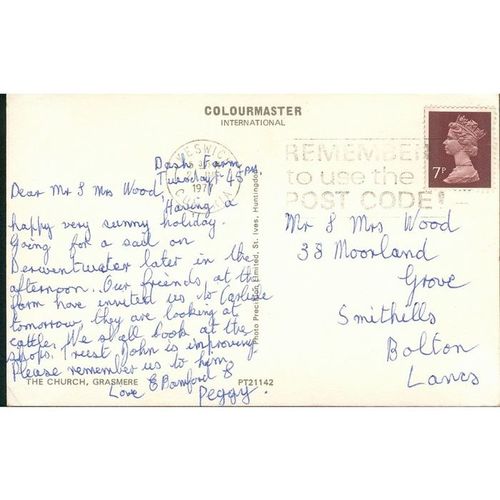 COLOURMASTER
INTERNATIONAL
KESWICK
197
REMEMBER
to use the
POST CODE!
7P
Dash Farm
Tuesday 1-45 PM.
Dear Mr & Mrs Wood,
Having a
happy very sunny holiday.
Going for a sail on
Derwentwater later in the
afternoon. Our friends at the
farm have invited us to Carlisle
tomorrow, they are looking at
cattle. We shall look at the
shops, & rest. John is improving
Please remember us to him
Love E Bamford &
Peggy.
THE CHURCH, GRASMERE
PT21142
Photo Precision Limited, St. Ives, Huntingdon
Mr & Mrs Wood
38 Moorland
Grove
Smithills
Bolton
Lancs